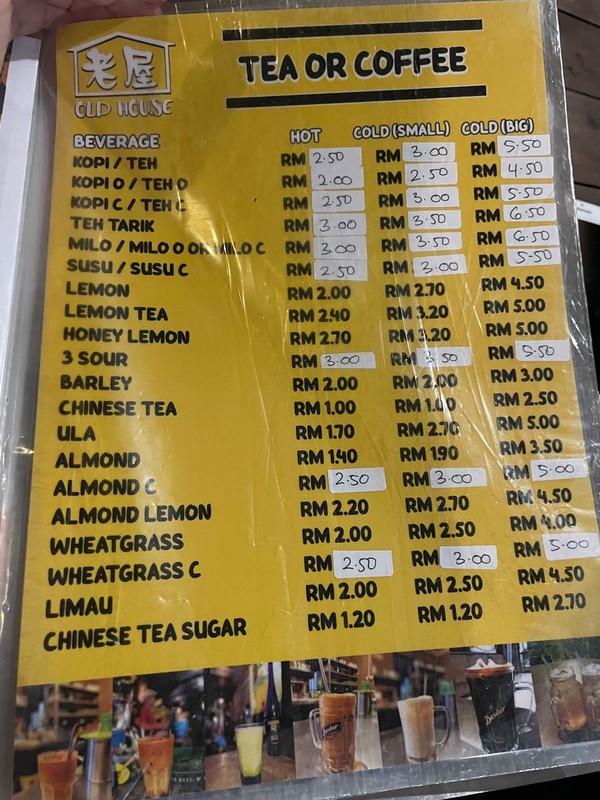 老屋
OLD HOUSE
TEA OR COFFEE
BEVERAGE HOT COLD (SMALL) COLD (BIG)
KOPI / TEH RM 2.50 RM 3.00 RM 5.50
KOPI O / TEH O RM 2.00 RM 2.50 RM 4.50
KOPI C / TEH C RM 2.50 RM 3.00 RM 5.50
TEH TARIK RM 3.00 RM 3.50 RM 6.50
MILO / MILO O OR MILO C RM 3.00 RM 3.50 RM 6.50
SUSU / SUSU C RM 2.50 RM 3.00 RM 5.50
LEMON RM 2.00 RM 2.70 RM 4.50
LEMON TEA RM 2.40 RM 3.20 RM 5.00
HONEY LEMON RM 2.70 RM 3.20 RM 5.00
3 SOUR RM 3.00 RM 3.50 RM 5.50
BARLEY RM 2.00 RM 2.00 RM 3.00
CHINESE TEA RM 1.00 RM 1.00 RM 2.50
ULA RM 1.70 RM 2.70 RM 5.00
ALMOND RM 1.40 RM 1.90 RM 3.50
ALMOND C RM 2.50 RM 3.00 RM 5.00
ALMOND LEMON RM 2.20 RM 2.70 RM 4.50
WHEATGRASS RM 2.00 RM 2.50 RM 4.00
WHEATGRASS C RM 2.50 RM 3.00 RM 5.00
LIMAU RM 2.00 RM 2.50 RM 4.50
CHINESE TEA SUGAR RM 1.20 RM 1.20 RM 2.70